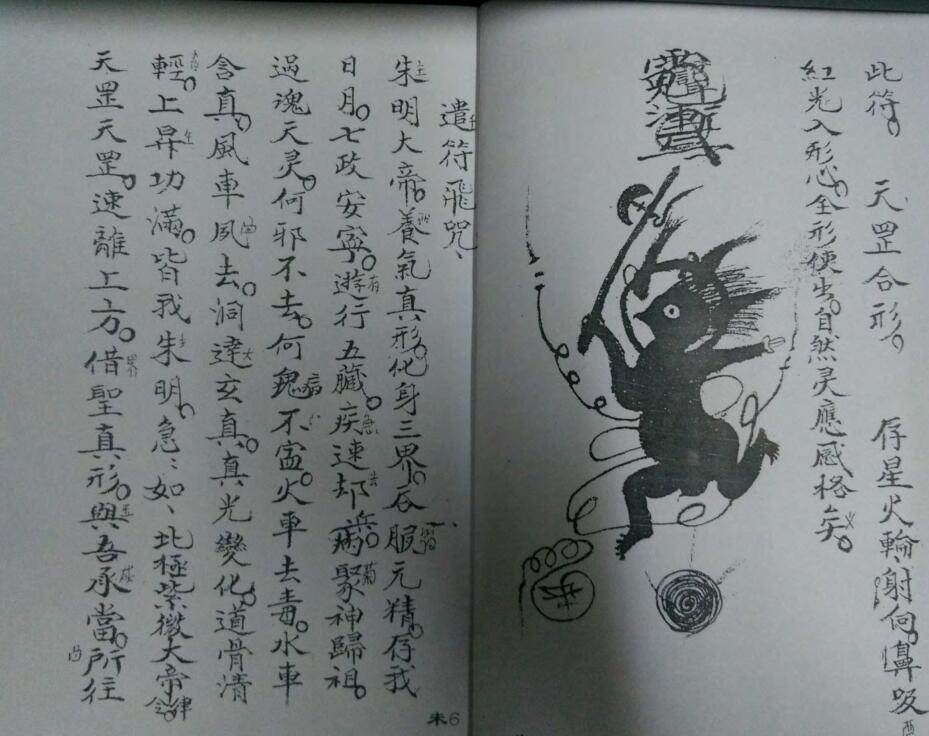 此符。天罡合形。存星火輪射向。鼻吸
紅光入形心。全形使出。自然灵應感格矣。
遣符飛咒、
朱明大帝。養氣真形。化身三界。吞服元精。存我
日月。七政安寧。遊行五臟。疾速却兵。病聚神歸祖。
過魂天灵。何邪不去。何鬼不𥁞。火車去毒。水車
含真。風車夙去。洞達玄真。真光變化。道骨清
輕。上昇功滿。皆我朱明。急〻如〻北極紫微大帝律令。
天罡天罡。速離上方。借聖真形。與吾承當。所往
朱6